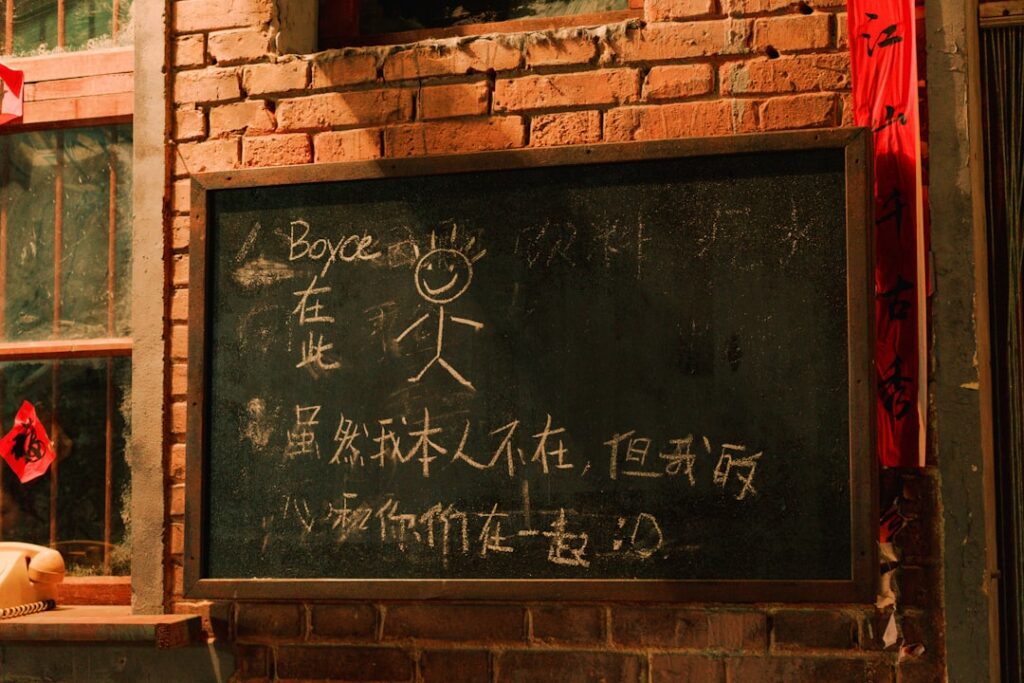 Boyce
在
此
饮料
虽然我本人不在,但我
心和你们在一起 :D
江山千古秀
福